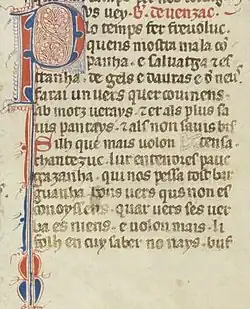 os vey. B. de venzac.
Lo temps fer frevoluc
quens mostra mala co
panha. e salvatga et es
tranha. de gels e dauras e de neu
farai un vers quer covinens
ab motz verays. et als plus sa
vis pantays. et als non savis bis
Silh que mais volon densa
chantezuc. lur entencios
gazanha. qui nos pessa tost bar
guanha. bons vers qus non es
conoyssens. quar vers ses ver
ba es niens. e volon mais. li
folh en cuy saber no nays. buf